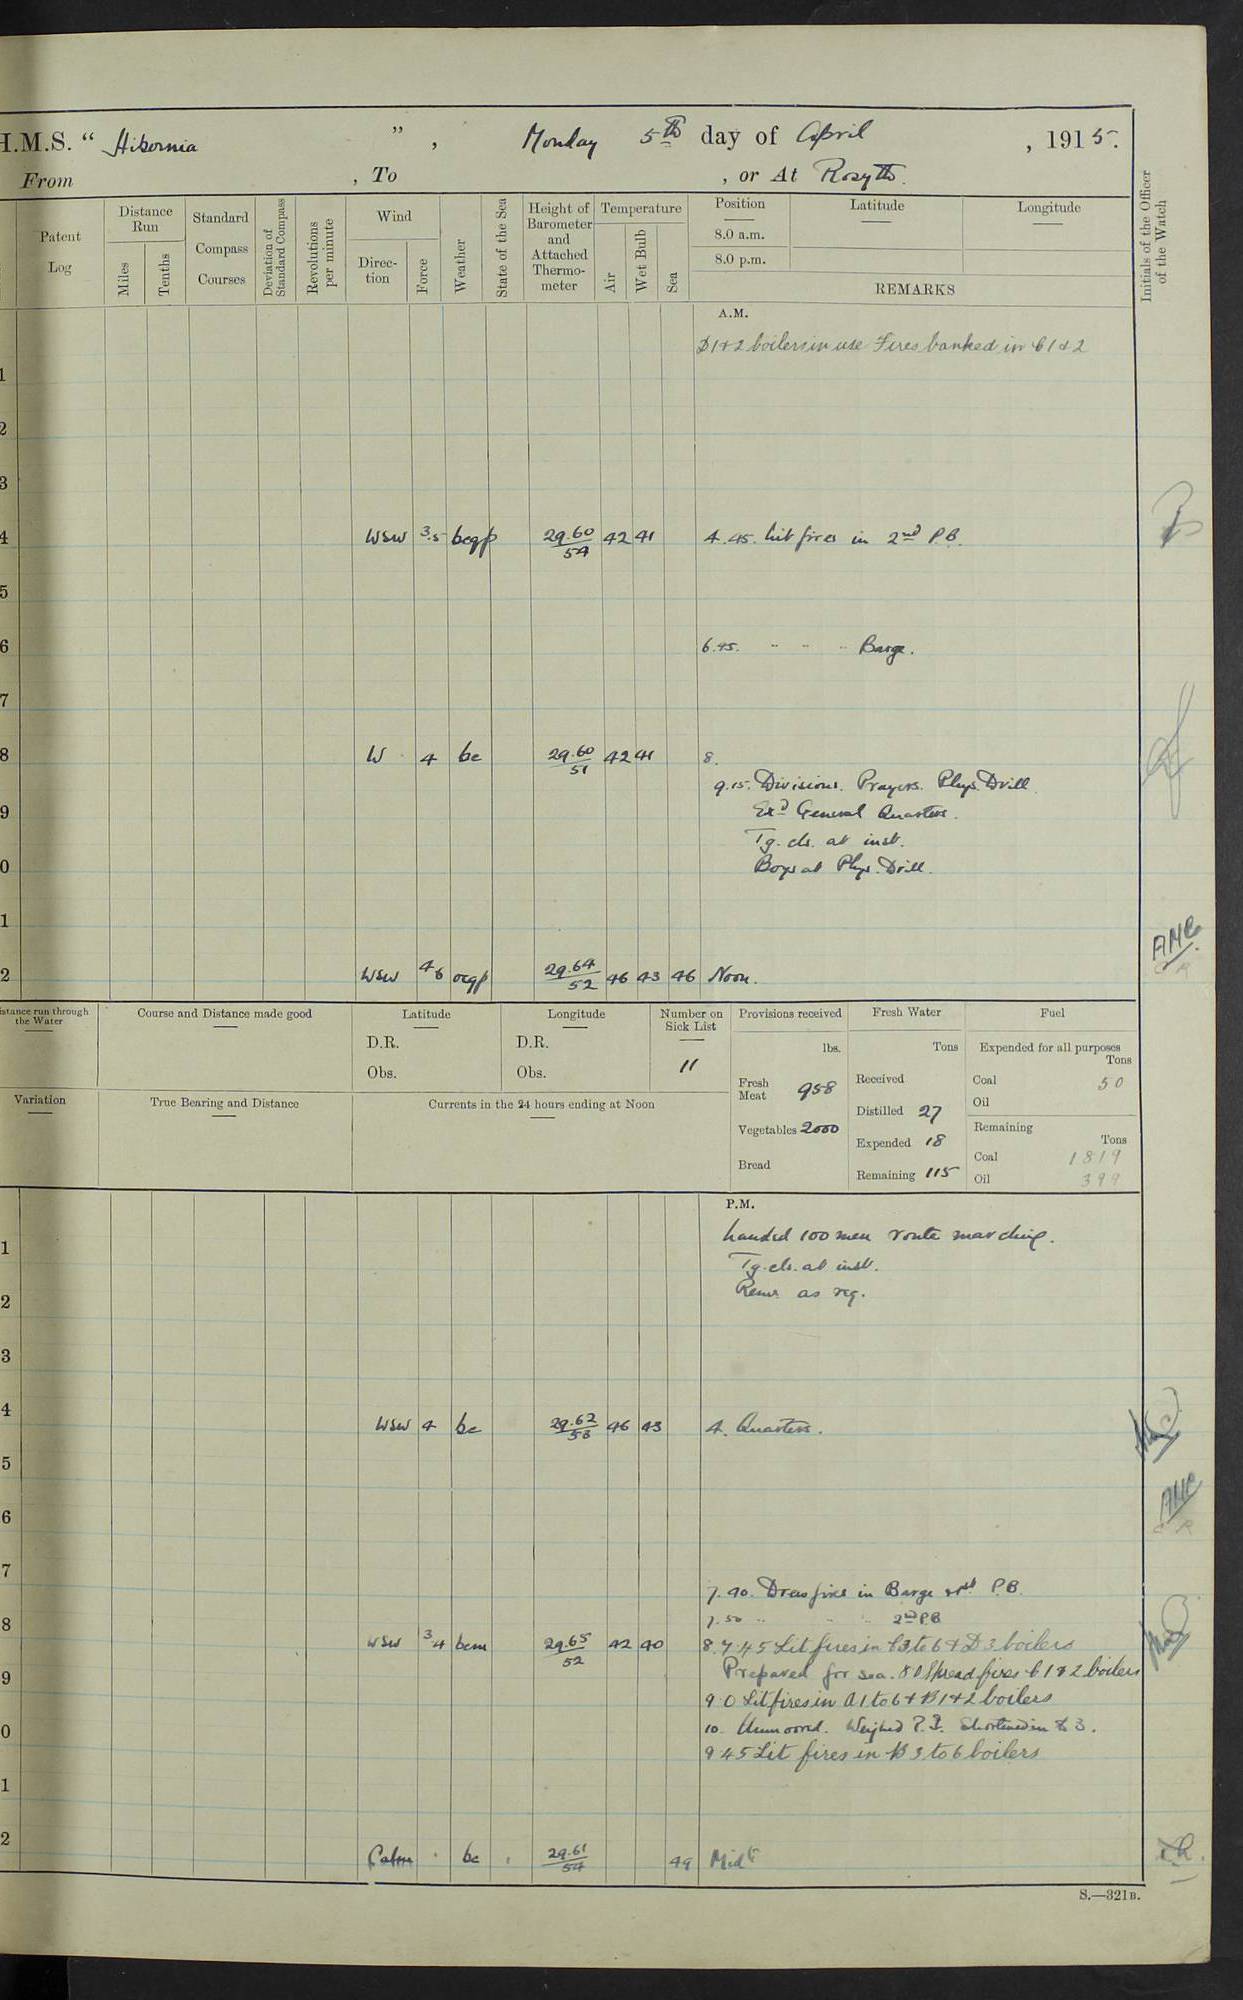 H.M.S. “ Hibernia ” , Monday 5th day of April , 1915.
From , To , or At Rosyth.
Patent Log
Distance Run
Miles
Tenths
Standard Compass Courses
Deviation of Standard Compass
Revolutions per minute
Wind
Direction
Force
Weather
State of the Sea
Height of Barometer and Attached Thermometer
Temperature
Air
Wet Bulb
Sea
Position
8.0 a.m.
8.0 p.m.
Latitude
Longitude
REMARKS
Initials of the Officer of the Watch
A.M.
D1+2 boilers in use Fires banked in C1 & 2
1
2
3
4 WSW 3.5 bcqp 29.60/54 42 41 4.45. Lit fires in 2nd P.B.
5
6 6.45. " " " Barge.
7
8 W 4 bc 29.60/51 42 41 8.
9.15. Divisions. Prayers. Phys. Drill.
9 Exd General Quarters.
Tg. cls. at inst.
0 Boys at Phys. Drill.
1 ANC
2 WSW 4 6 ocqp 29.64/52 46 43 46 Noon.
Distance run through the Water
Course and Distance made good
Latitude
D.R.
Obs.
Longitude
D.R.
Obs.
Number on Sick List
11
Provisions received
lbs.
Fresh Meat 958
Vegetables 2000
Bread
Fresh Water
Tons
Received
Distilled 27
Expended 18
Remaining 115
Fuel
Expended for all purposes
Tons
Coal 50
Oil
Remaining
Tons
Coal 1819
Oil 399
Variation
True Bearing and Distance
Currents in the 24 hours ending at Noon
P.M.
Landed 100 men route marching.
1
Tg. cls. at inst.
2 as req.
3
4 WSW 4 bc 29.62/53 46 43 4. Quarters.
5
6 ANC
7
7.40. Drew fires in Barge P.B.
8 7.50 " " " 2nd P.B.
WSW 3 4 bcm 29.65/52 42 40 8. 7.45 Lit fires in C3 to 6 & D3 boilers
9 Prepared for sea. 8 0 Spread fires C1 & 2 boilers
9 0 Lit fires in A1 to 6 & B1+2 boilers
0 10. Unmoored. Weighed P.B. Shortened in to 3.
9 45 Lit fires in B3 to 6 boilers
1
2 Calm bc 29.61/54 49 Midt
S.—321B.